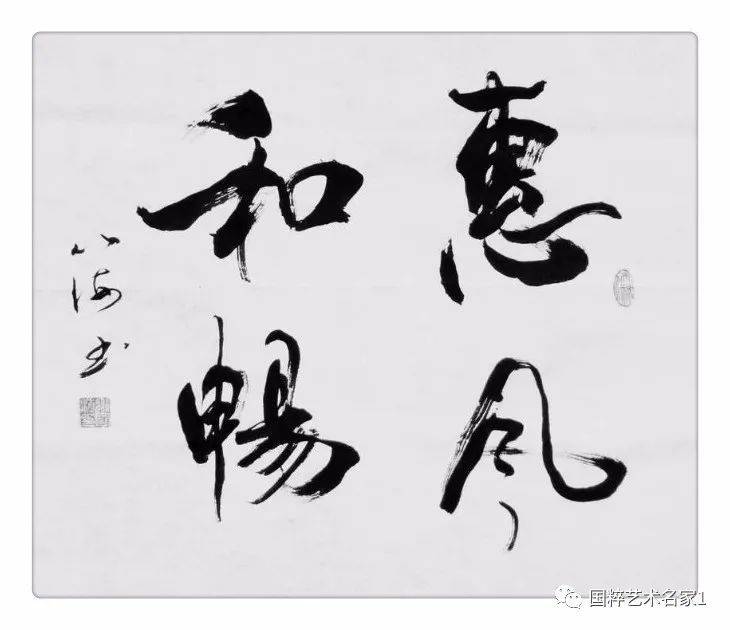 惠风
和暢
山海书
国粹艺术名家1